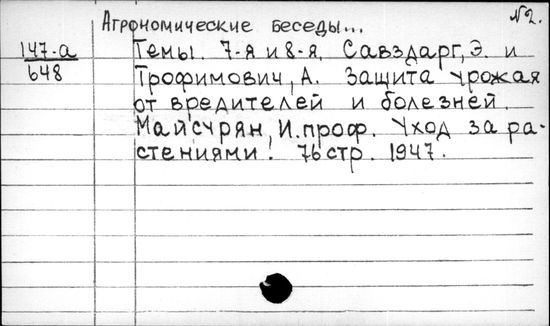 №2.
Агрономические беседы...
147-а
648
Темы. 7-я и 8-я. Савздарг, Э. и
Трофимович, А. Защита урожая
от вредителей и болезней.
Майсурян, И. проф. Уход за ра-
стениями. 76 стр. 1947.